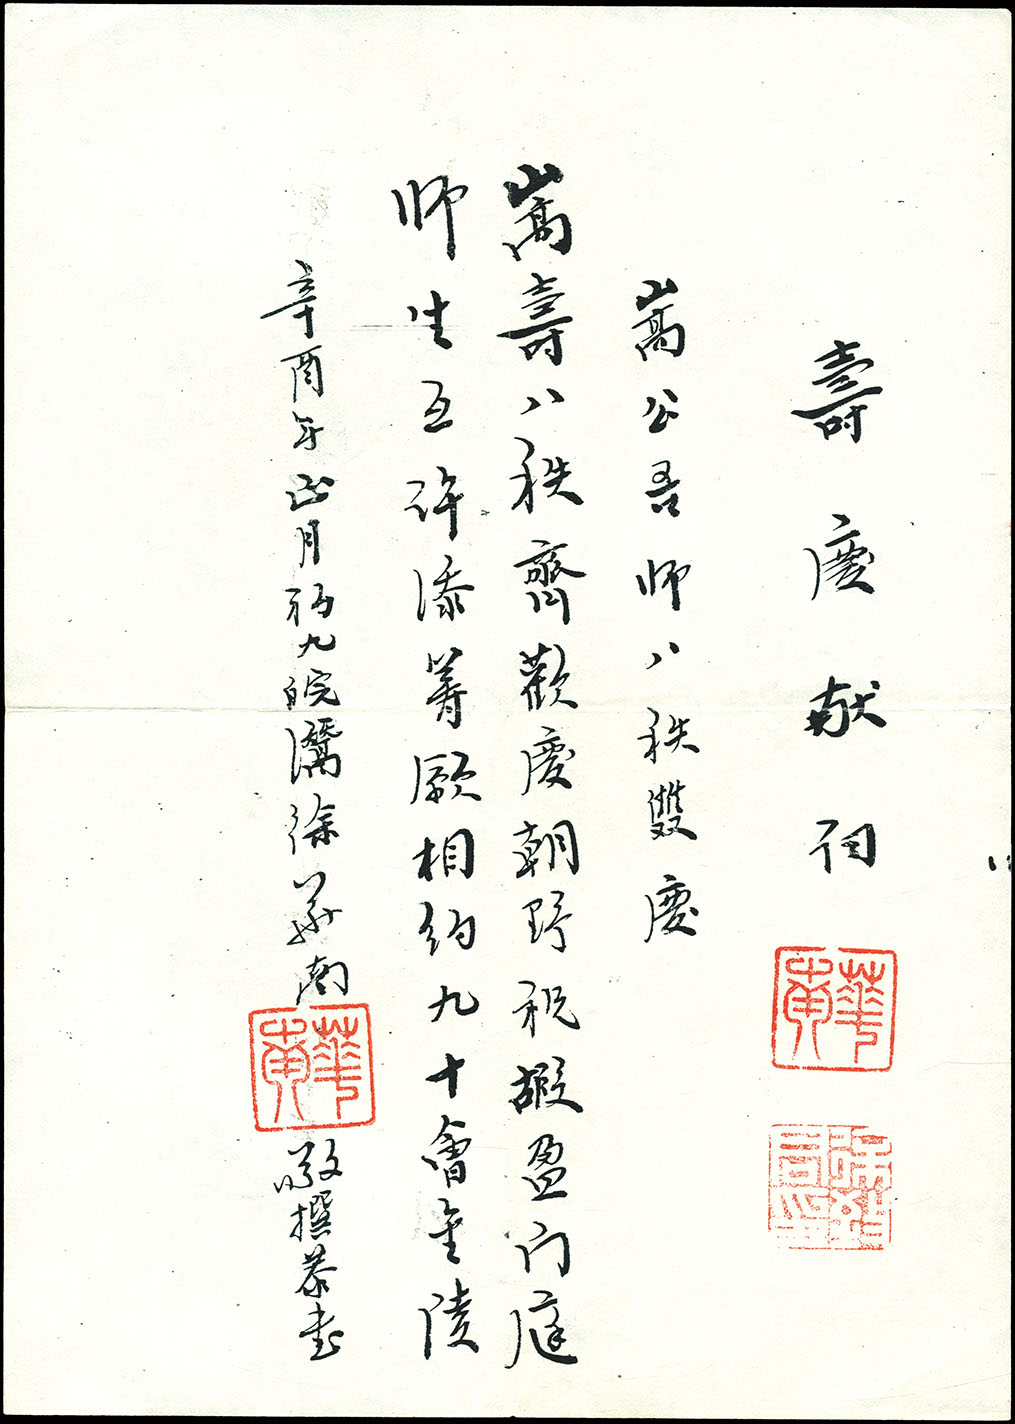 壽慶献词
嵩公吾师八秩雙慶
嵩壽八秩齊歡慶朝野祝嘏盈门庭
师生互许添筹願相约九十會金陵
辛酉年正月初九皖灊徐华南
敬撰恭书